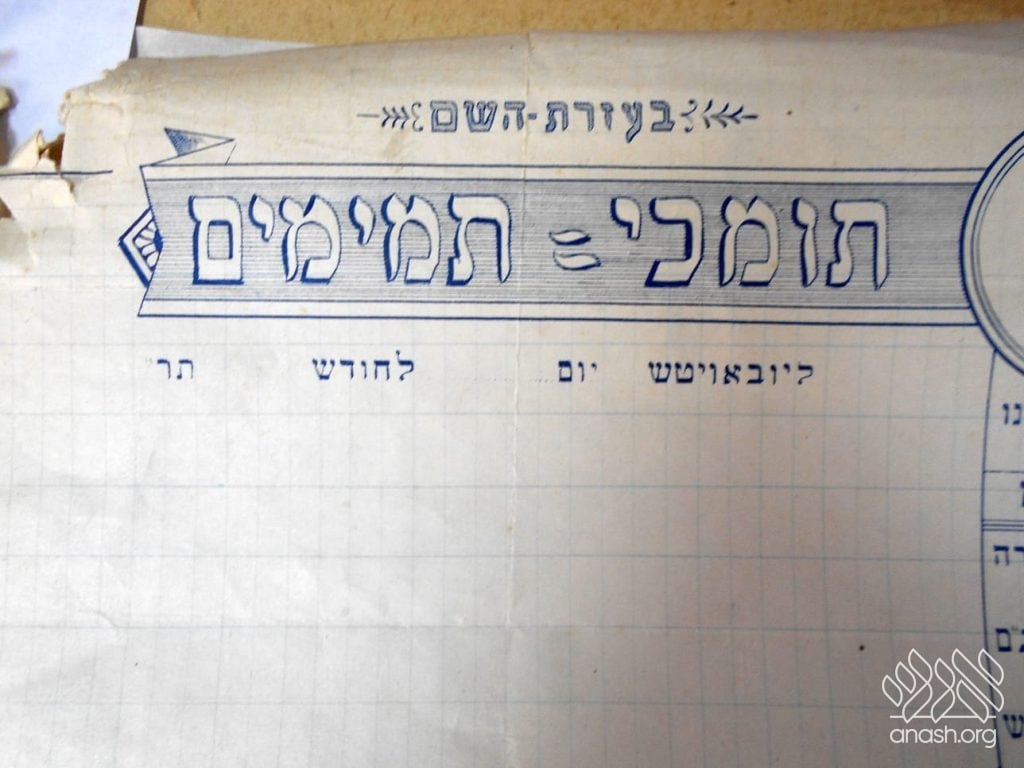 בעזרת-השם
תומכי = תמימים
ליובאוויטש יום ... לחודש תר"
נו
רה
ש
אנש
anash.org